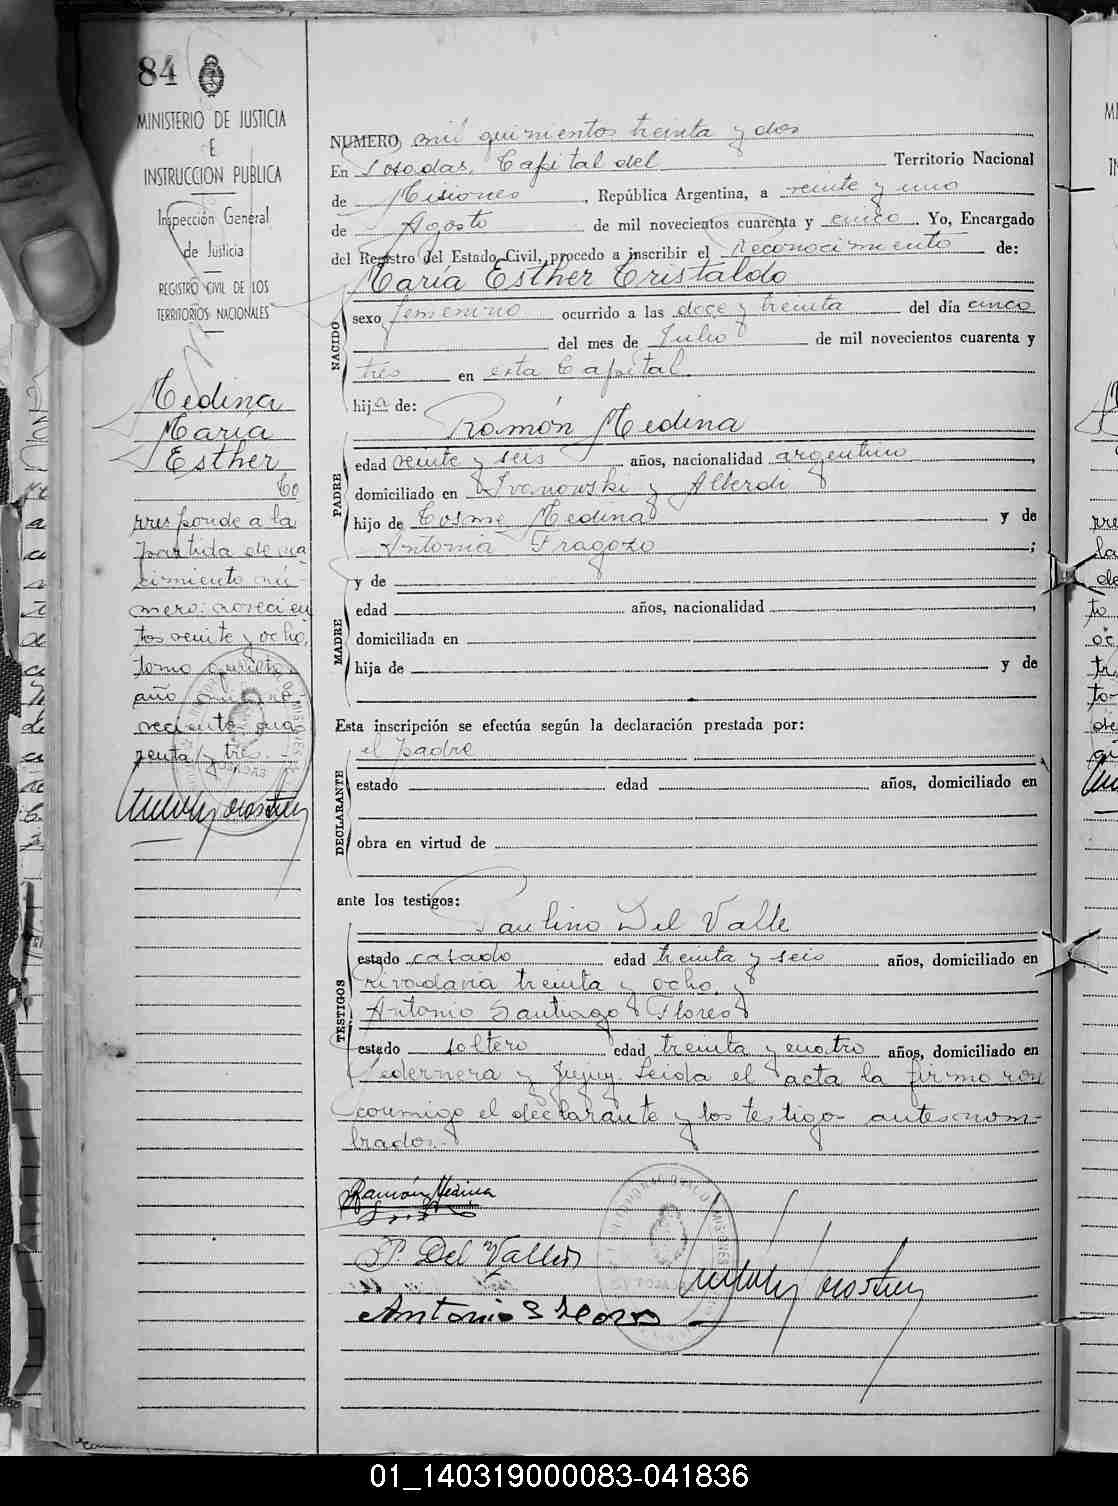 84
MINISTERIO DE JUSTICIA
E
INSTRUCCION PUBLICA
Inspección General
de Justicia
REGISTRO CIVIL DE LOS
TERRITORIOS NACIONALES
Medina
María
Esther
Co
rresponde a la
partida de na
cimiento nú
mero: novecien
tos veinte y ocho,
tomo
año mil no-
vecientos cua
renta y tres.
NUMERO mil quinientos treinta y dos
En Posadas, Capital del Territorio Nacional
de Misiones, República Argentina, a veinte y uno
de Agosto de mil novecientos cuarenta y cinco. Yo, Encargado
del Registro del Estado Civil, procedo a inscribir el reconocimiento de:
María Esther Cristaldo
NACIDO
sexo femenino ocurrido a las doce y treinta del día cinco
del mes de Julio de mil novecientos cuarenta y
tres en esta Capital.
hija de:
Ramón Medina
PADRE
edad veinte y seis años, nacionalidad argentino,
domiciliado en Ivanowski y Alberdi
hijo de Cosme Medina y de
Antonia Fragozo;
MADRE
y de
edad años, nacionalidad,
domiciliada en
hija de y de
Esta inscripción se efectúa según la declaración prestada por:
el padre
DECLARANTE
estado edad años, domiciliado en
obra en virtud de
ante los testigos:
Paulino Del Valle
TESTIGOS
estado casado edad treinta y seis años, domiciliado en
Rivadavia treinta y ocho, y
Antonio Santiago Flores
estado soltero edad treinta y cuatro años, domiciliado en
Pedernera y Jujuy. Leida el acta la firmaron
conmigo el declarante y los testigos antesnom-
brados.
Ramón Medina
P. Del Valle
Antonio S Flores
01_140319000083-041836